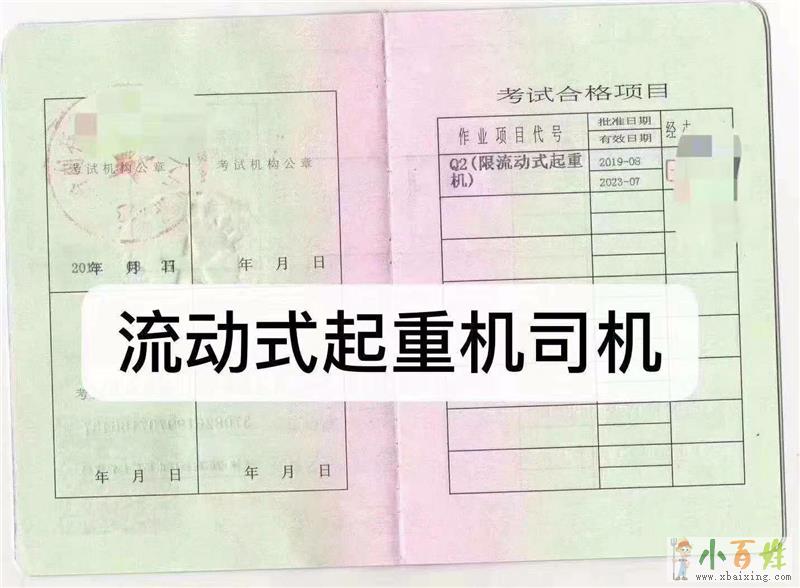 考试机构公章
考试机构公章
年 月 日
年 月 日
年 月 日
年 月 日
考试合格项目
作业项目代号
批准日期
有效日期
经
Q2(限流动式起重机)
2019-08
2023-07
流动式起重机司机
小百姓
www.xbaixing.com